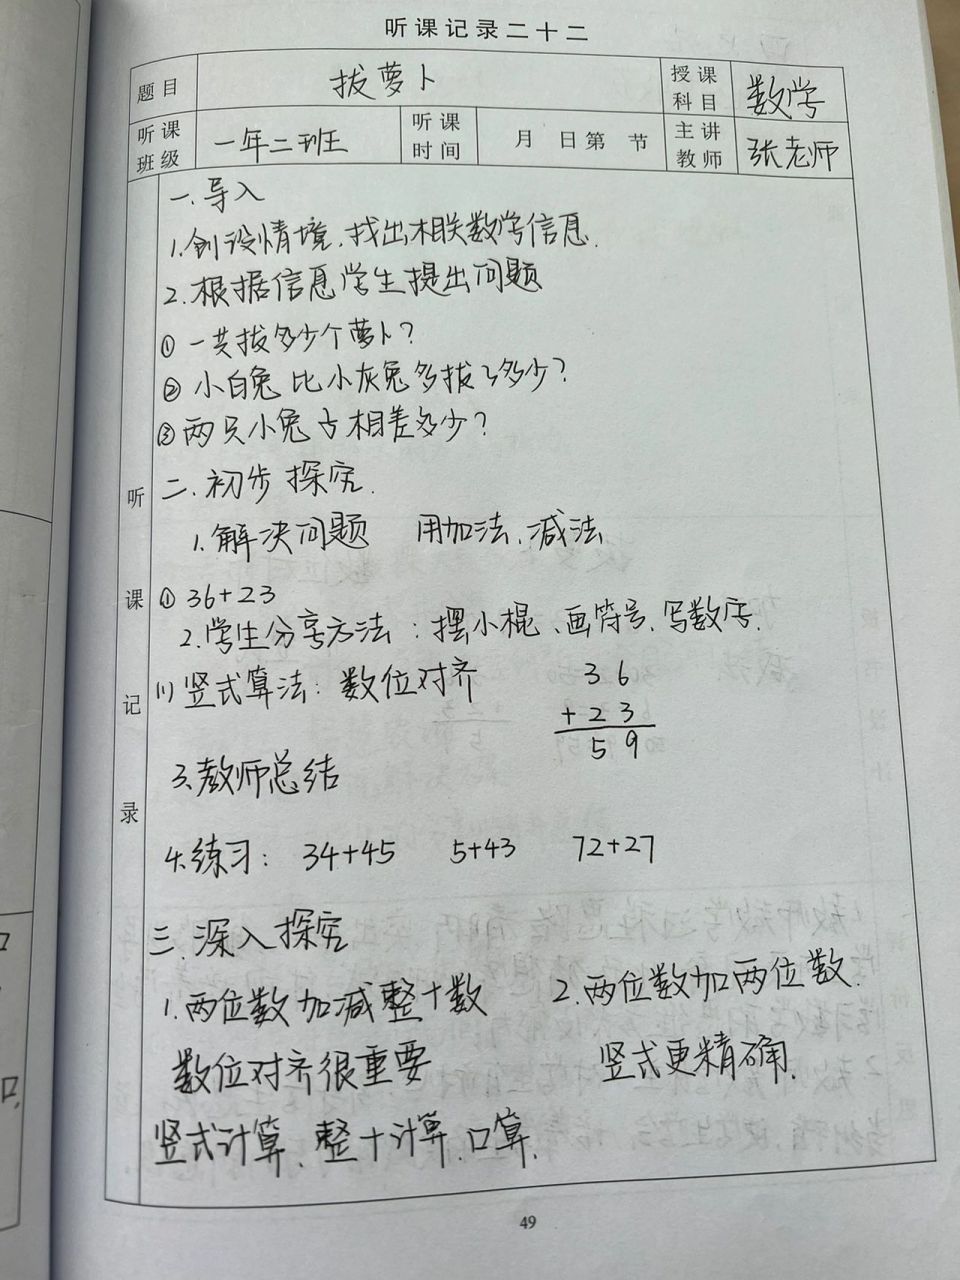 听课记录二十二
题目 拔萝卜 授课科目 数学
听课班级 一年二班 听课时间 月 日第 节 主讲教师 张老师
听课记录
一.导入
1.创设情境.找出相关数学信息.
2.根据信息学生提出问题
① 一共拔多少个萝卜?
② 小白兔比小灰兔多拔了多少?
③ 两只小兔占相差多少?
二.初步探究.
1.解决问题 用加法、减法
① 36+23
2.学生分享方法:摆小棍、画符号、写数序.
(1) 竖式算法:数位对齐
36
+23
59
3.教师总结
4.练习: 34+45 5+43 72+27
三.深入探究
1.两位数加减整十数 2.两位数加两位数.
数位对齐很重要 竖式更精确.
竖式计算、整十计算、口算.
49